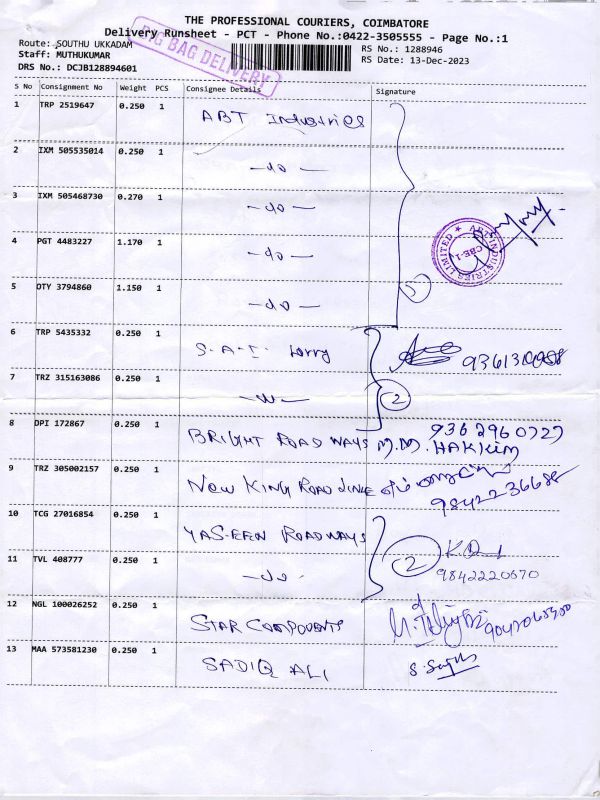 THE PROFESSIONAL COURIERS, COIMBATORE
Delivery Runsheet - PCT - Phone No.:0422-3505555 - Page No.:1
Route: SOUTHU UKKADAM
Staff: MUTHUKUMAR
DRS No.: DCJB128894601
BIG BAG DELIVERY
RS No.: 1288946
RS Date: 13-Dec-2023
S No Consignment No Weight PCS Consignee Details Signature
1 TRP 2519647 0.250 1 ABT Industries
2 IXM 505535014 0.250 1 -do-
3 IXM 505468730 0.270 1 -do-
4 PGT 4483227 1.170 1 -do-
ABT INDUSTRIES LIMITED ★ CBE-1
5 OTY 3794860 1.150 1 -do- 5
6 TRP 5435332 0.250 1 S.A.I. Lorry
7 TRZ 315163086 0.250 1 2
8 DPI 172867 0.250 1 BRIGHT ROAD WAYS M.M. HAKKIM
9362960727
9 TRZ 305002157 0.250 1 New KING ROAD LINE
9842236688
10 TCG 27016854 0.250 1 YASEEN ROADWAYS
11 TVL 408777 0.250 1 -do- 2
9842220570
12 NGL 100026252 0.250 1 STAR COMPODENTS
13 MAA 573581230 0.250 1 SADIQ ALI